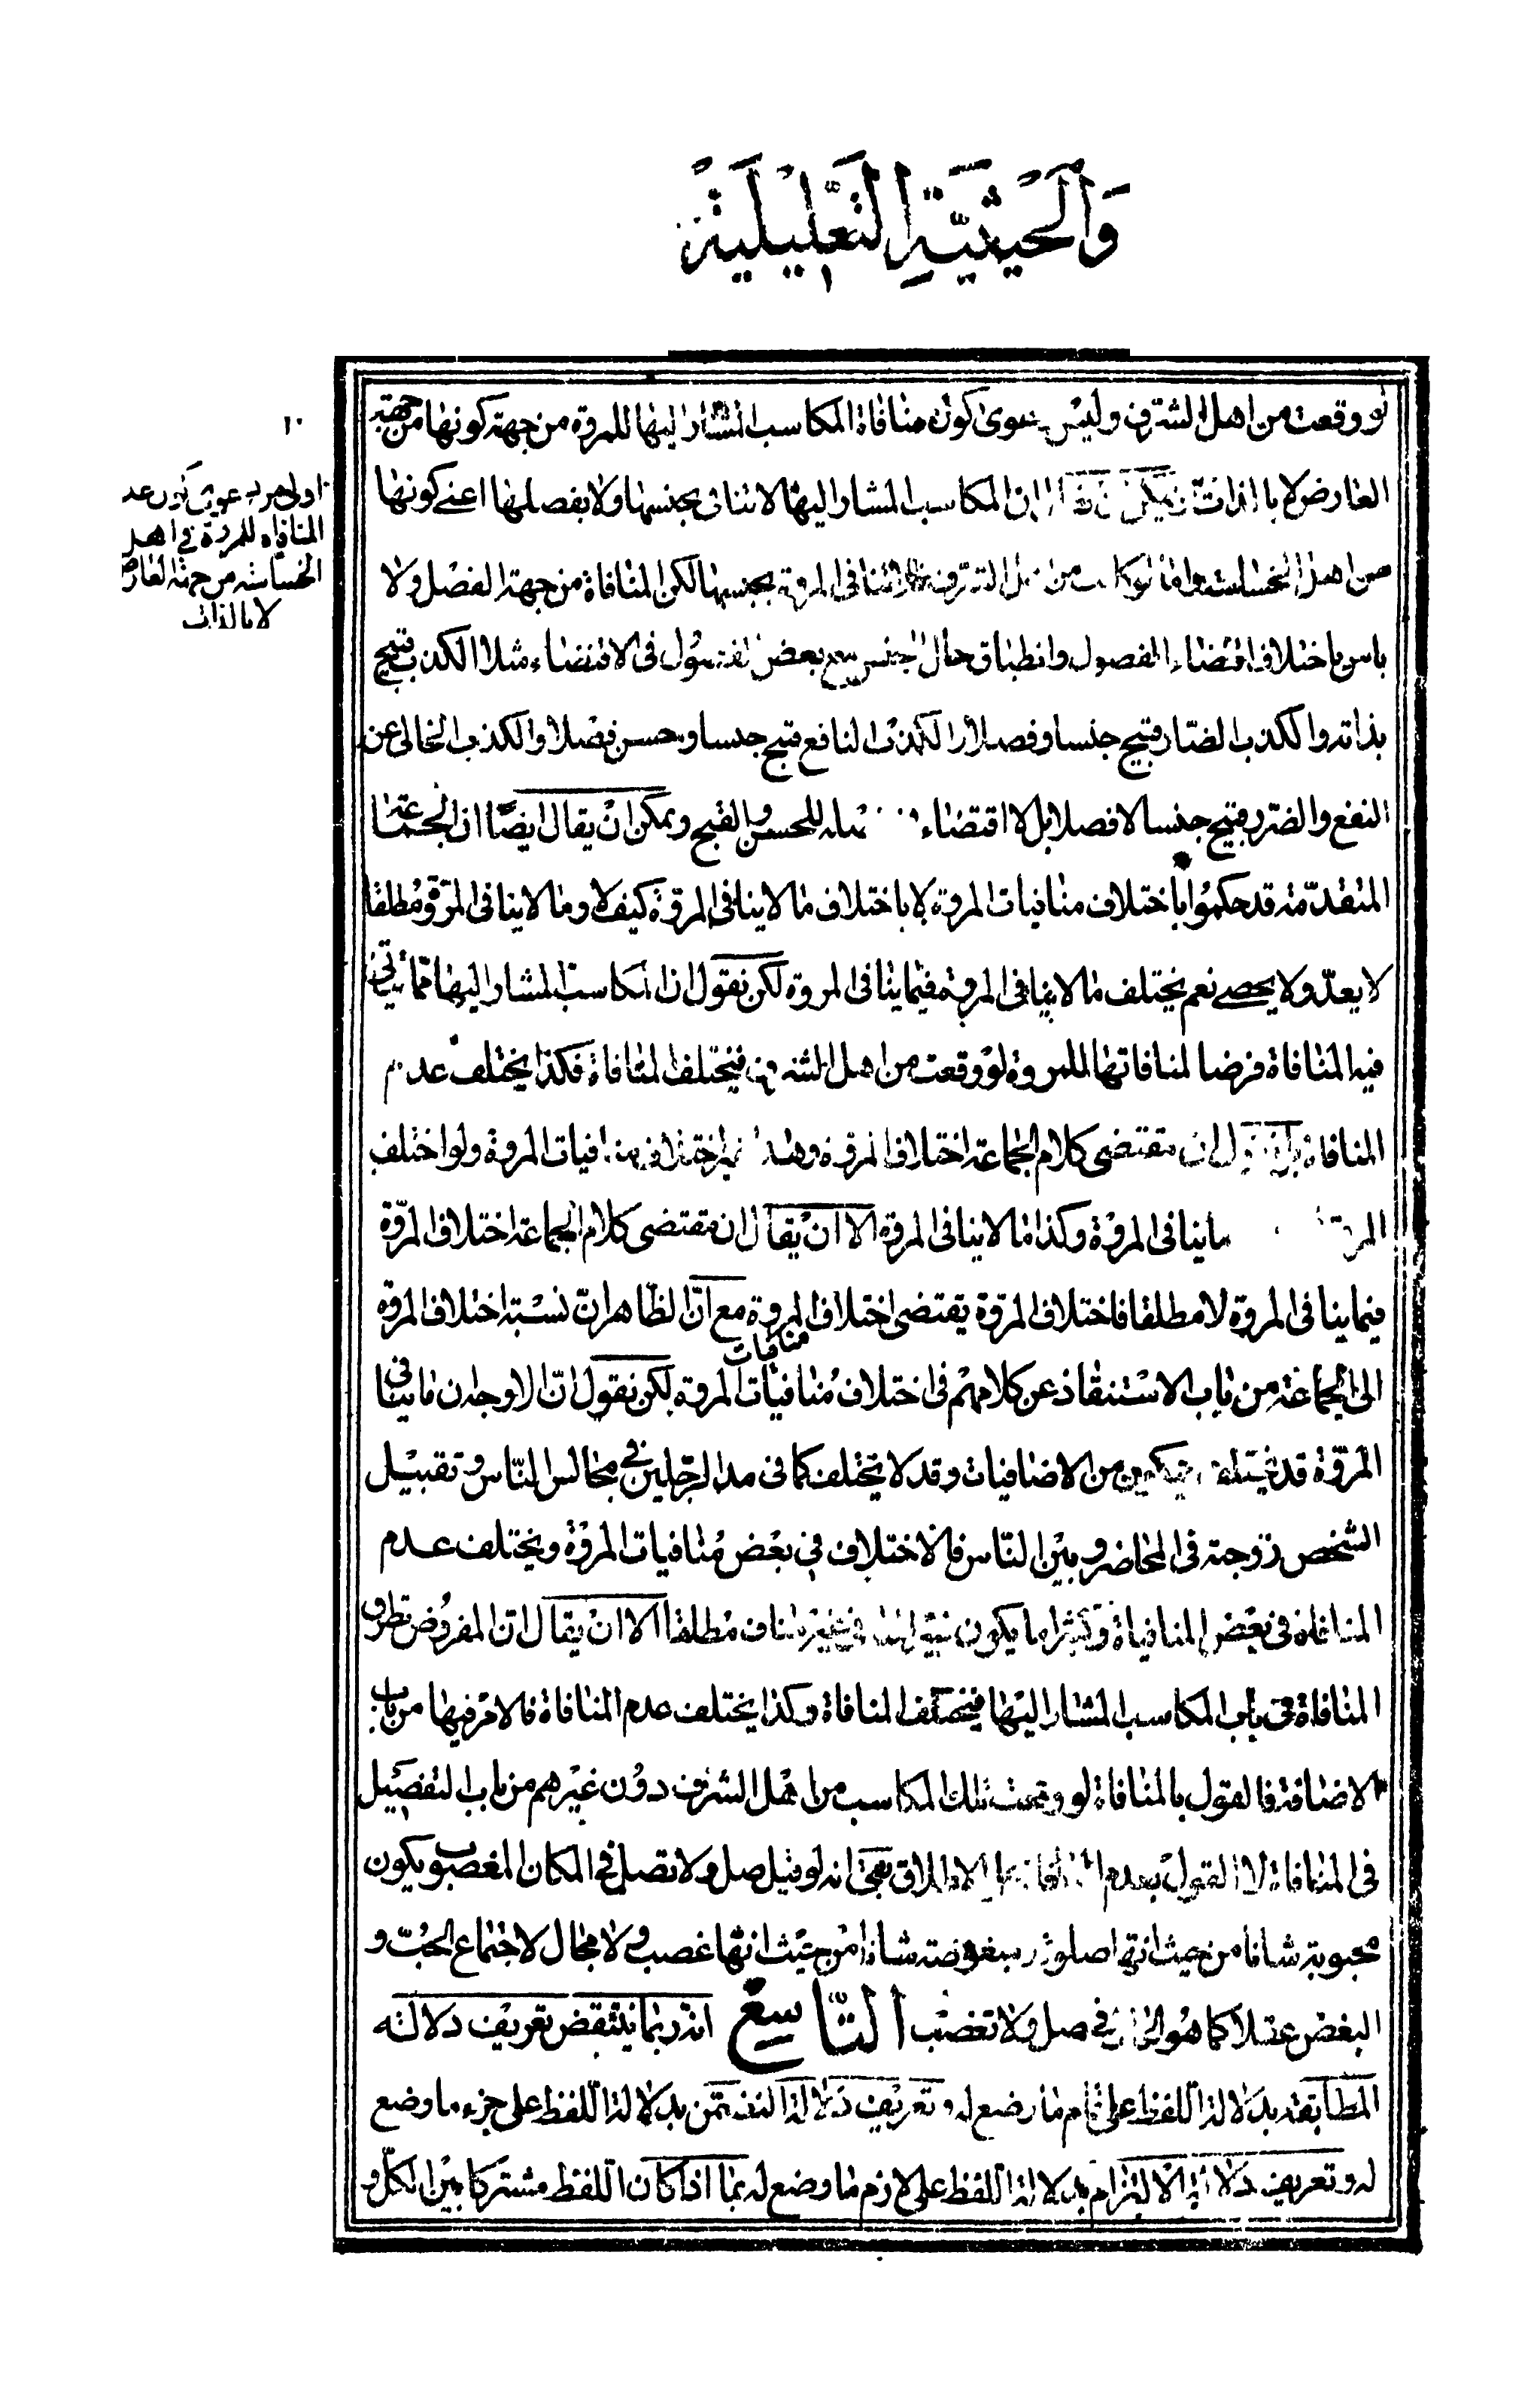 وَالْحَيْثِيَّةِ التَّعْلِيلِيَّةِ
لو وقعت من اهل الشرف وليس دعوى كون منافاة المكاسب المشار اليها للمروة من جهة كونها من جهة
العارض لا بالذات ان المكاسب المشار اليها لا تنافى بجنسها ولا بفصلها اعنى كونها
من اهل الخساسة واما لو كانت من اهل الشرف فلا تنافى المروة بجنسها لكن المنافاة من جهة الفصل ولا
باس باختلاف اقتضاء الفصول وانطباق حال الجنس مع بعض الفصول فى الاقتضاء مثلا الكذب قبيح
بذاته والكذب الضار قبيح جنسا وفصلا والكذب النافع قبيح جنسا وحسن فصلا والكذب الخالى عن
النفع والضرر قبيح جنسا لا فصلا بل لا اقتضاء للحسن والقبح ويمكن ان يقال ايضا ان الجماعة
المتقدمة قد حكموا باختلاف منافيات المروة لا باختلاف ما لا ينافى المروة كيف لا وما لا ينافى المروة مطلقا
لا يعد ولا يحصى نعم يختلف ما لا ينافى المروة فيما ينافى المروة لكن نقول ان المكاسب المشار اليها مما يتأتى
فيه المنافاة فرضا لمنافاتها للمروة لو وقعت من اهل الشرف فيختلف المنافاة فكذا يختلف عدم
المنافاة بل نقول ان مقتضى كلام الجماعة اختلاف المروة وهذا غير اختلاف منافيات المروة ولو اختلف
المروة ما ينافى المروة وكذا ما لا ينافى المروة الا ان يقال ان مقتضى كلام الجماعة اختلاف المروة
فيما ينافى المروة لا مطلقا فاختلاف المروة يقتضى اختلاف المروة مع ان الظاهر ان نسبة اختلاف المروة
منافيات
الى الجماعة من باب الاستنقاذ عن كلامهم فى اختلاف منافيات المروة لكن نقول ان الاوجه ان ما ينافى
المروة قد يختلف فيكون من الاضافيات وقد لا يختلف كما فى مد الرجلين فى مجالس الناس وتقبيل
الشخص زوجته فى المحاضر وبين الناس فالاختلاف فى بعض منافيات المروة ويختلف عدم
المنافاة فى بعض المنافيات وكثيرا ما يكون غير مناف مطلقا الا ان يقال ان المفروض تطرق
المنافاة فى باب المكاسب المشار اليها فيختلف المنافاة وكذا يختلف عدم المنافاة فالامر فيها من باب
الاضافة فالقول بالمنافاة لو وقعت تلك المكاسب من اهل الشرف دون غيرهم من باب التفصيل
فى المنافاة لا القول بعدم المنافاة على الاطلاق نعم انه لو قيل صل ولا تصل فى المكان المغصوب يكون
محبوبة شانا من حيث انها صلوة ومبغوضة شانا من حيث انها غصب ولا مجال لاجتماع الحب و
البغض عقلا كما هو الحال فى صل ولا تغصب التاسع انه ربما ينتقض تعريف دلالة
المطابقة بدلالة اللفظ على تمام ما وضع له وتعريف دلالة التضمن بدلالة اللفظ على جزء ما وضع
له وتعريف دلالة الالتزام بدلالة اللفظ على لازم ما وضع له بما اذا كان اللفظ مشتركا بين الكل و
١٠
كون عد
المنافاة للمروة فى اهل
الخساسة من جهة العارض
لا بالذات